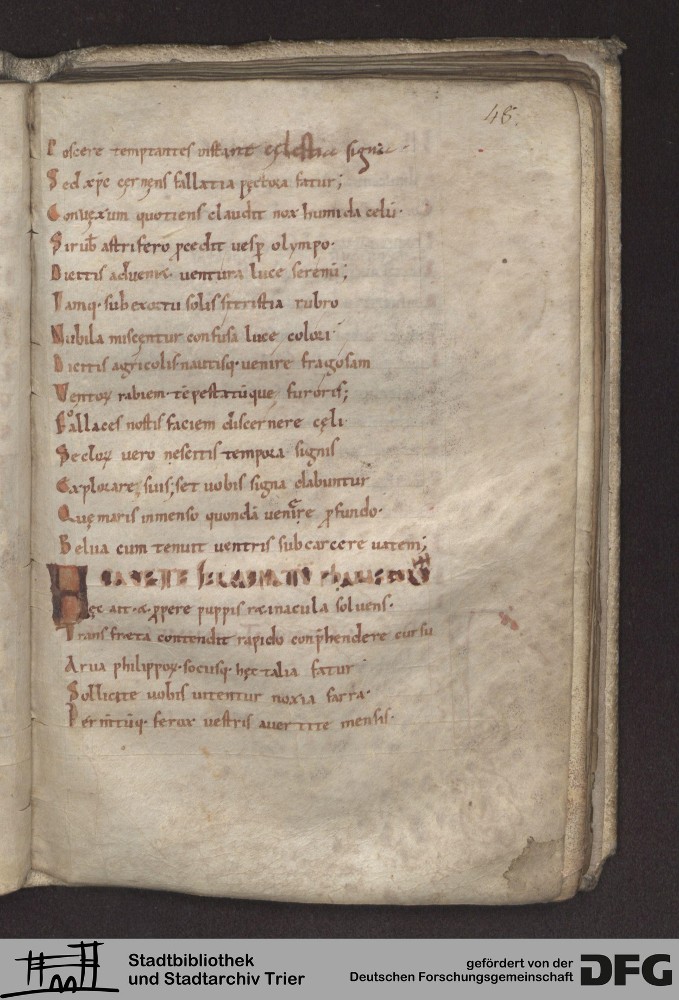 48.
Poscere temptantes vistant cęlestia signa.
Sed xp̄c cęrnens fallatia pęctora fatur;
Convęxum quotiens claudit nox humida celū.
Si rub̄ astrifero p̄cedit vesp̄ olympo.
Dicitis advenit. ventura luce serenū;
Iamq. sub exortu solis si tristia rubro
Nubila miscęntur confusa luce colori.
Dicitis agricolis. nautisq. venire fragosam
Ventoꝝ rabiem. tēpestatūque furoris;
Fallaces nostis faciem discernere cęli
Secloꝝ vero nescitis tempora signis
Explorare suis; set vobis signa dabuntur
Quę maris inmenso quondā venire p̄fundo.
Belua cum tenuit ventris sub carcere vatem;
Hęc ait. & p̄pere puppis r&inacula solvens.
Trans freta contendit rapido conp̄hendere cursu
Arva philippoꝝ. sociisq. hęc talia fatur
Sollicite vobis vitentur noxia farra.
Fermtūq. ferox vestris avertite mensis.
Stadtbibliothek
und Stadtarchiv Trier
gefördert von der
Deutschen Forschungsgemeinschaft
DFG